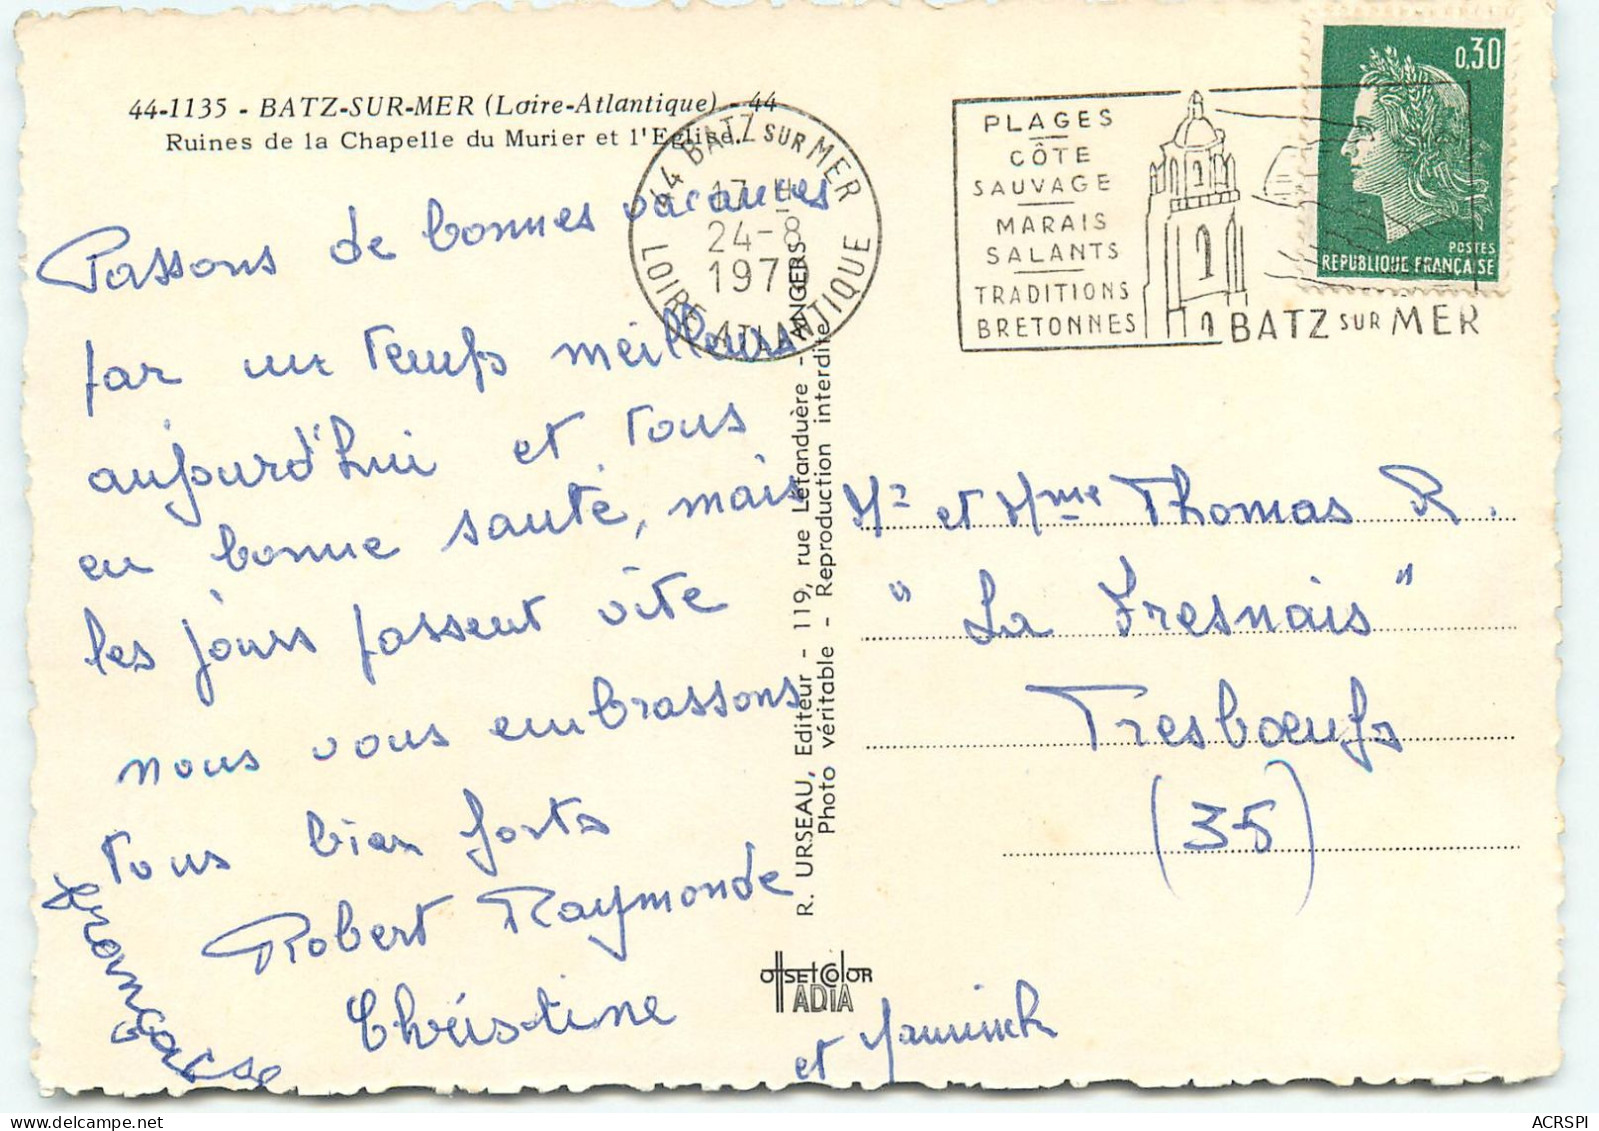 44-1135 - BATZ-SUR-MER (Loire-Atlantique) - 44
Ruines de la Chapelle du Murier et l'Eglise.
Passons de bonnes vacances
par un temps meilleurs
aujourd'hui et tous
en bonne santé, mais
les jours passent vite
nous vous embrassons
tous bien forts
Robert Raymonde
Christine
et Yannick
Françoise
44 BATZ SUR MER
17 H
24-8
197
LOIRE ATLANTIQUE
PLAGES
CÔTE
SAUVAGE
MARAIS
SALANTS
TRADITIONS
BRETONNES
BATZ SUR MER
0,30
POSTES
REPUBLIQUE FRANÇAISE
R. URSEAU, Editeur - 119, rue Létanduère - ANGERS
Photo véritable - Reproduction interdite
OffSET COlOR
IADIA
Mr et Mme Thomas R.
" La Fresnais "
Tresbœufs
(35)
ACRSPI